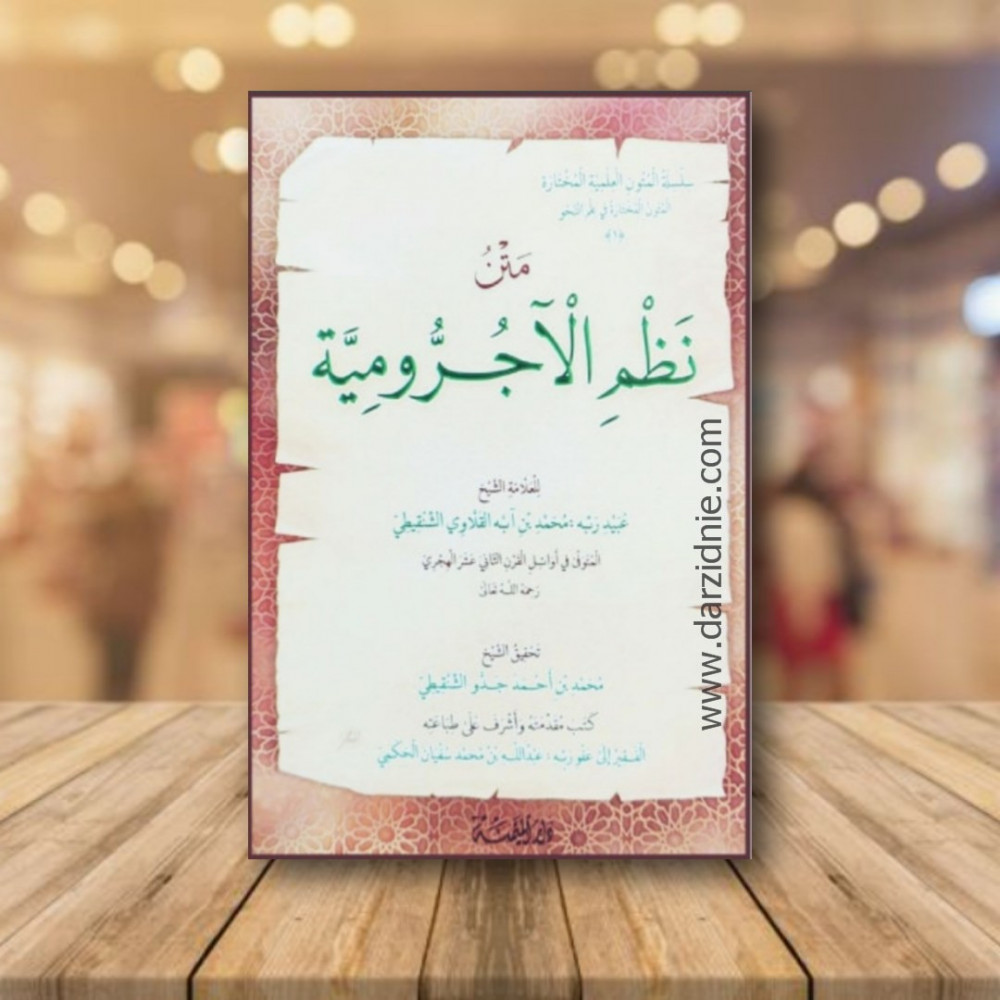 سِلْسِلَةُ الْمُتُونِ الْعِلْمِيَّةِ الْمُخْتَارَةِ
الْمُتُونُ الْمُخْتَارَةُ فِي عِلْمِ النَّحْوِ
﴿١﴾
مَتْنُ
نَظْمِ الْآجُرُّومِيَّة
لِلْعَلَّامَةِ الشَّيْخِ
عُبَيْدِ رَبِّه : مُحَمَّد بْنِ آبَّه القَلَّاوِي الشَّنْقِيطِيّ
الْمُتَوَفَّى فِي أَوَائِلِ الْقَرْنِ الثَّانِي عَشَرَ الْهِجْرِيّ
رَحِمَهُ اللَّهُ تَعَالَى
تَحْقِيقُ الشَّيْخِ
مُحَمَّد بْنِ أَحْمَد جَدُّو الشَّنْقِيطِيّ
كَتَبَ مُقَدِّمَتَهُ وَأَشْرَفَ عَلَى طِبَاعَتِهِ
الْفَقِيرُ إِلَى عَفْوِ رَبِّه : عَبْدُ اللَّه بْنُ مُحَمَّد سُفْيَان الْحَكَمِيّ
www.darzidnie.com